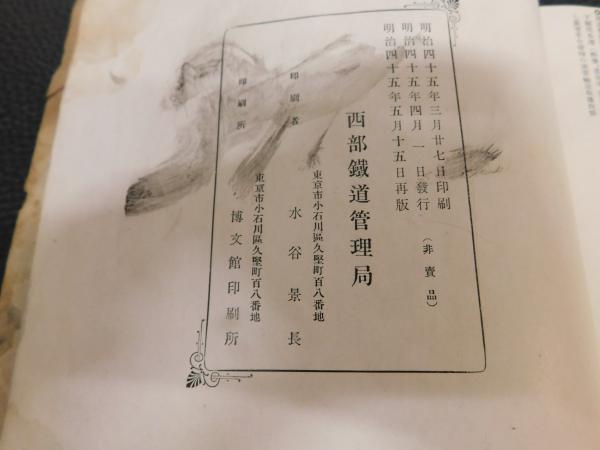 明治四十五年三月廿七日印刷
明治四十五年四月一日發行
明治四十五年五月十五日再版
(非賣品)
西部鐵道管理局
東京市小石川區久堅町百八番地
印刷者 水谷景長
東京市小石川區久堅町百八番地
印刷所 博文館印刷所